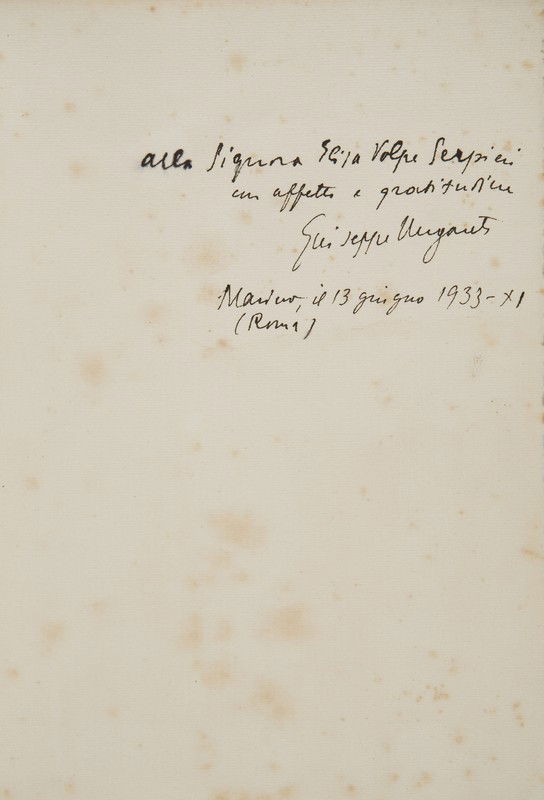 alla Signora Elisa Volpe Serpieri
con affetto e gratitudine
Giuseppe Ungaretti
Marino, il 13 giugno 1933-XI
(Roma)